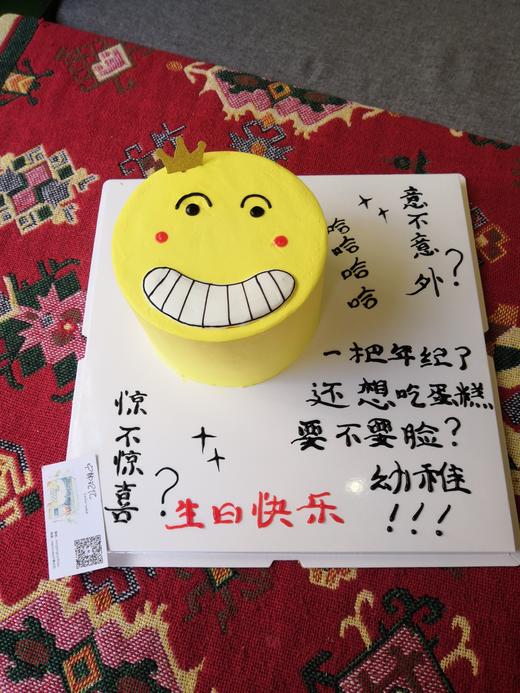 意不意外?
哈哈哈哈
一把年纪了
还想吃蛋糕
要不要脸?
幼稚
!!!
惊不惊喜?
生日快乐